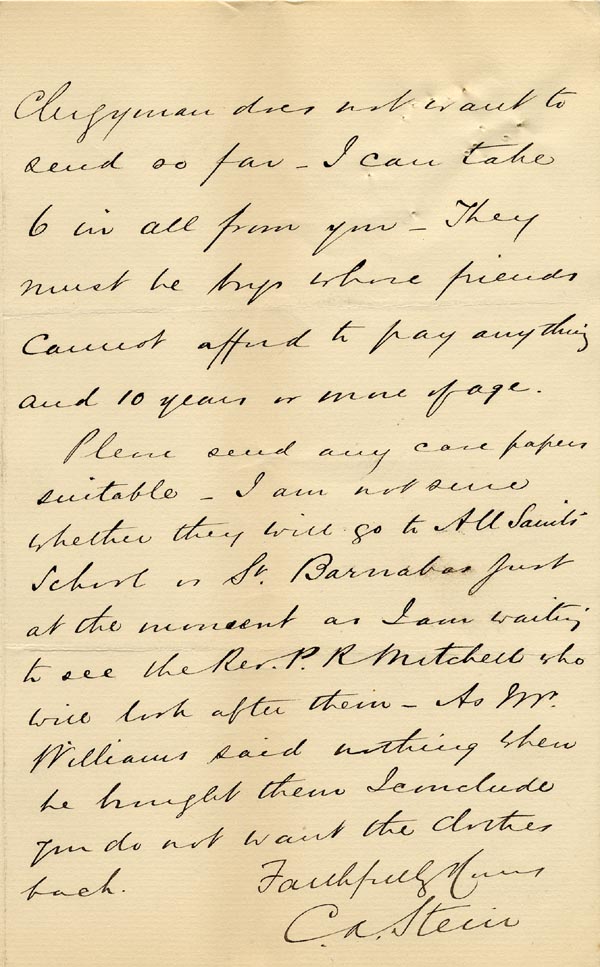 Clergyman does not want to
send so far – I can take
6 in all from you – They
must be boys whose friends
cannot afford to pay anything
and 10 years or more of age.
Please send any case papers
suitable – I am not sure
whether they will go to All Saints
School or St. Barnabas Just
at the moment as I am waiting
to see the Rev. P. R Mitchell who
will look after them – As Mr.
Williams said nothing when
he brought them I conclude
you do not want the clothes
back.
Faithfully Yours
C. A. Stein